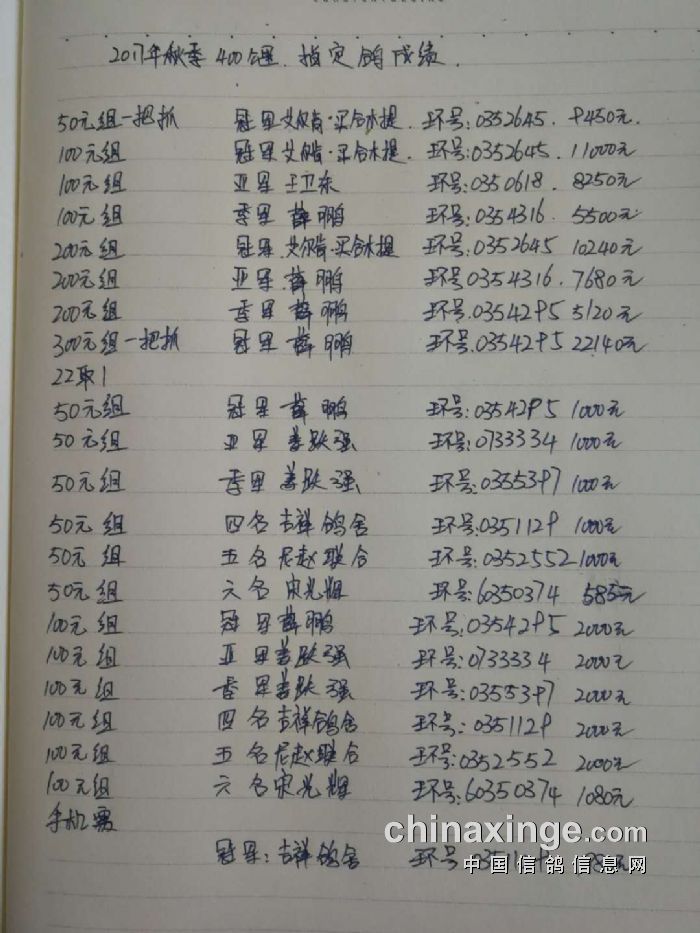 2017年秋季400公里.指定鸽成绩.
50元组一把抓 冠军艾尔肯·买合木提. 环号:0352645. 9450元.
100元组 冠军艾尔肯·买合木提. 环号:0352645. 11000元
100元组 亚军 王卫东 环号:0350618. 8250元
100元组 季军 薛鹏 环号:0354316. 5500元
200元组 冠军.艾尔肯·买合木提 环号:0352645 10240元
200元组 亚军.薛鹏 环号:0354316. 7680元
200元组 季军 薛鹏 环号:0354295 5120元
300元组一把抓 冠军 薛鹏 环号.0354295 22140元
22取1
50元组 冠军 薛鹏 环号:0354295 1000元
50元组 亚军 姜跃强 环号:0733334 1000元
50元组 季军 姜跃强 环号:0355397 1000元
50元组 四名吉祥鸽舍 环号:0351129 1000元
50元组 五名尼赵联合 环号:0352552 1000元
50元组 六名 宋光辉 环号:60350374 585元
100元组 冠军薛鹏 环号:0354295 2000元
100元组 亚军姜跃强 环号:0733334 2000元
100元组 季军姜跃强 环号:0355397 2000元
100元组 四名吉祥鸽舍 环号:0351129 2000元
100元组 五名尼赵联合 环号:0352552 2000元
100元组 六名宋光辉 环号:60350374 1080元
手机
chinaxinge.com
冠军:吉祥鸽舍 环号:
中国信鸽信息网